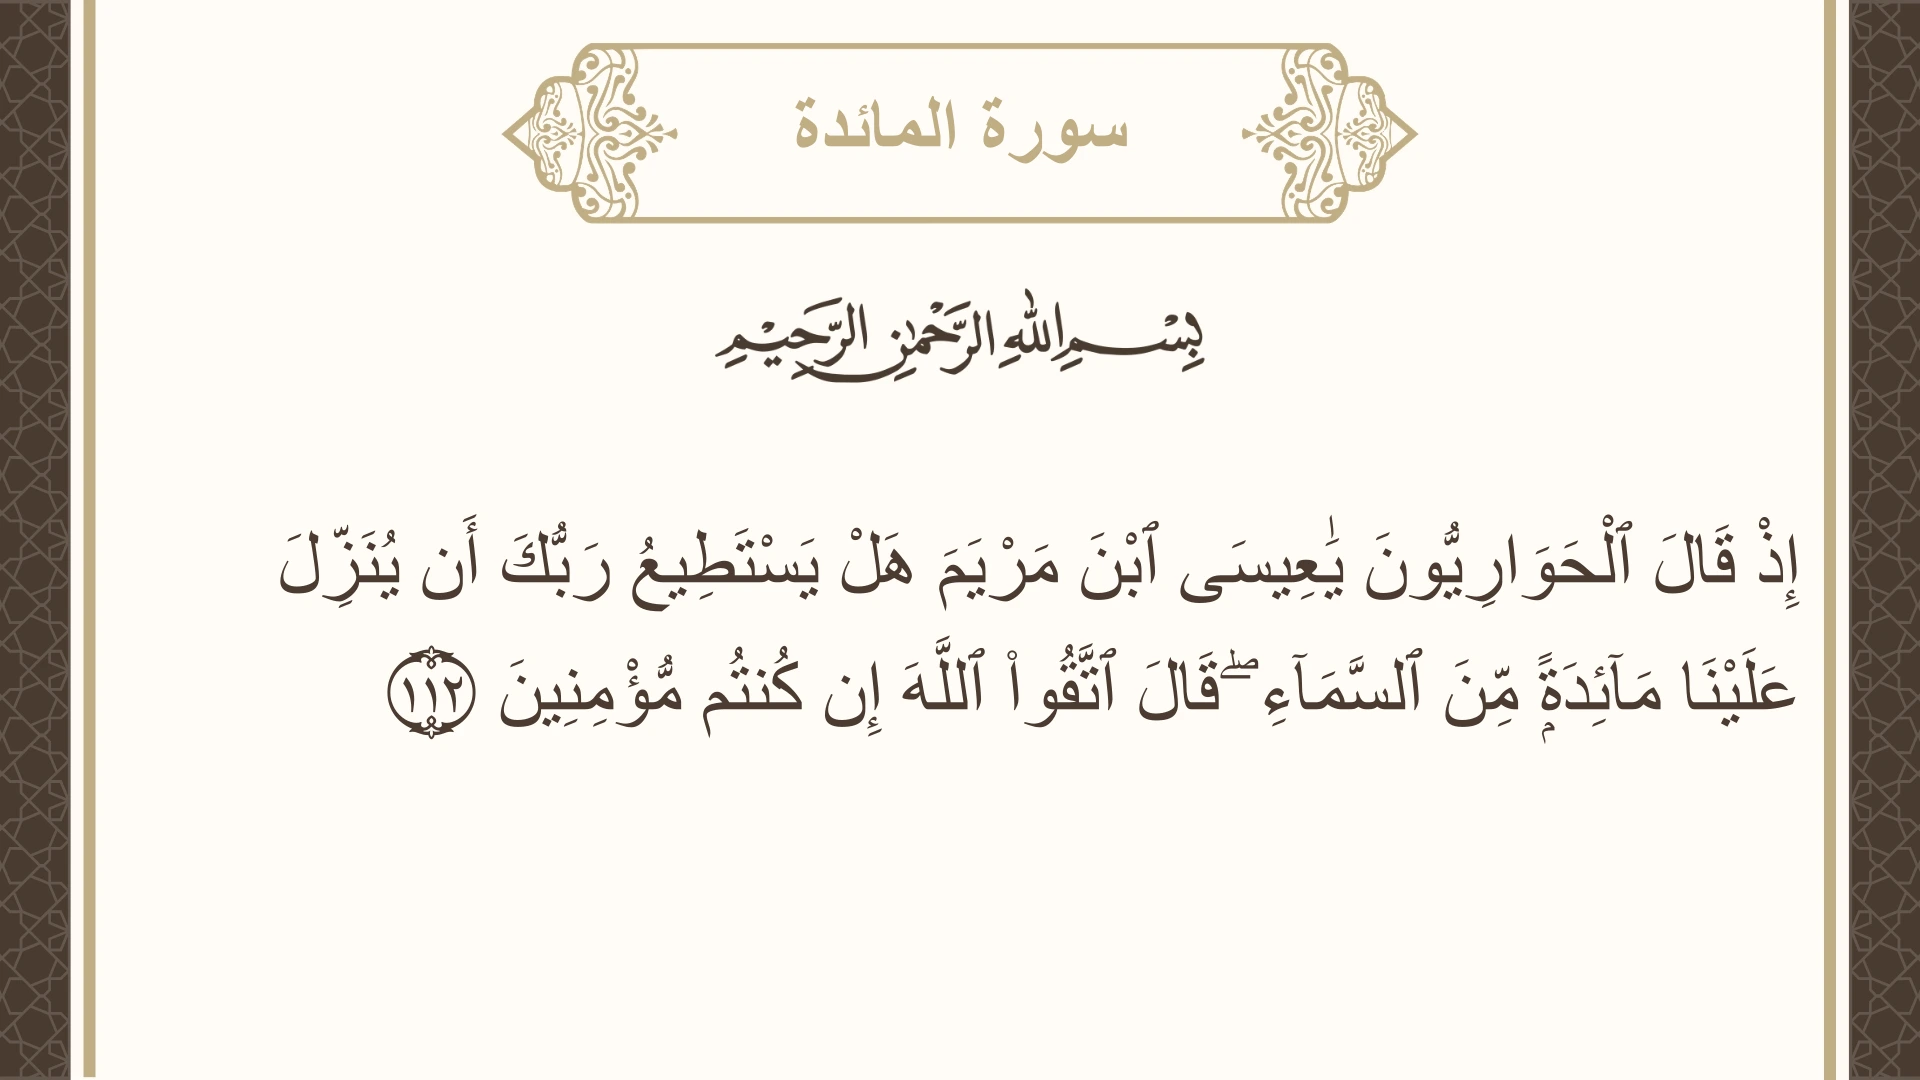 سورة المائدة
بِسْمِ اللهِ الرَّحْمٰنِ الرَّحِيْمِ
إِذْ قَالَ ٱلْحَوَارِيُّونَ يَٰعِيسَى ٱبْنَ مَرْيَمَ هَلْ يَسْتَطِيعُ رَبُّكَ أَن يُنَزِّلَ
عَلَيْنَا مَآئِدَةًۭ مِّنَ ٱلسَّمَآءِ ۖ قَالَ ٱتَّقُوا۟ ٱللَّهَ إِن كُنتُم مُّؤْمِنِينَ ١١٢